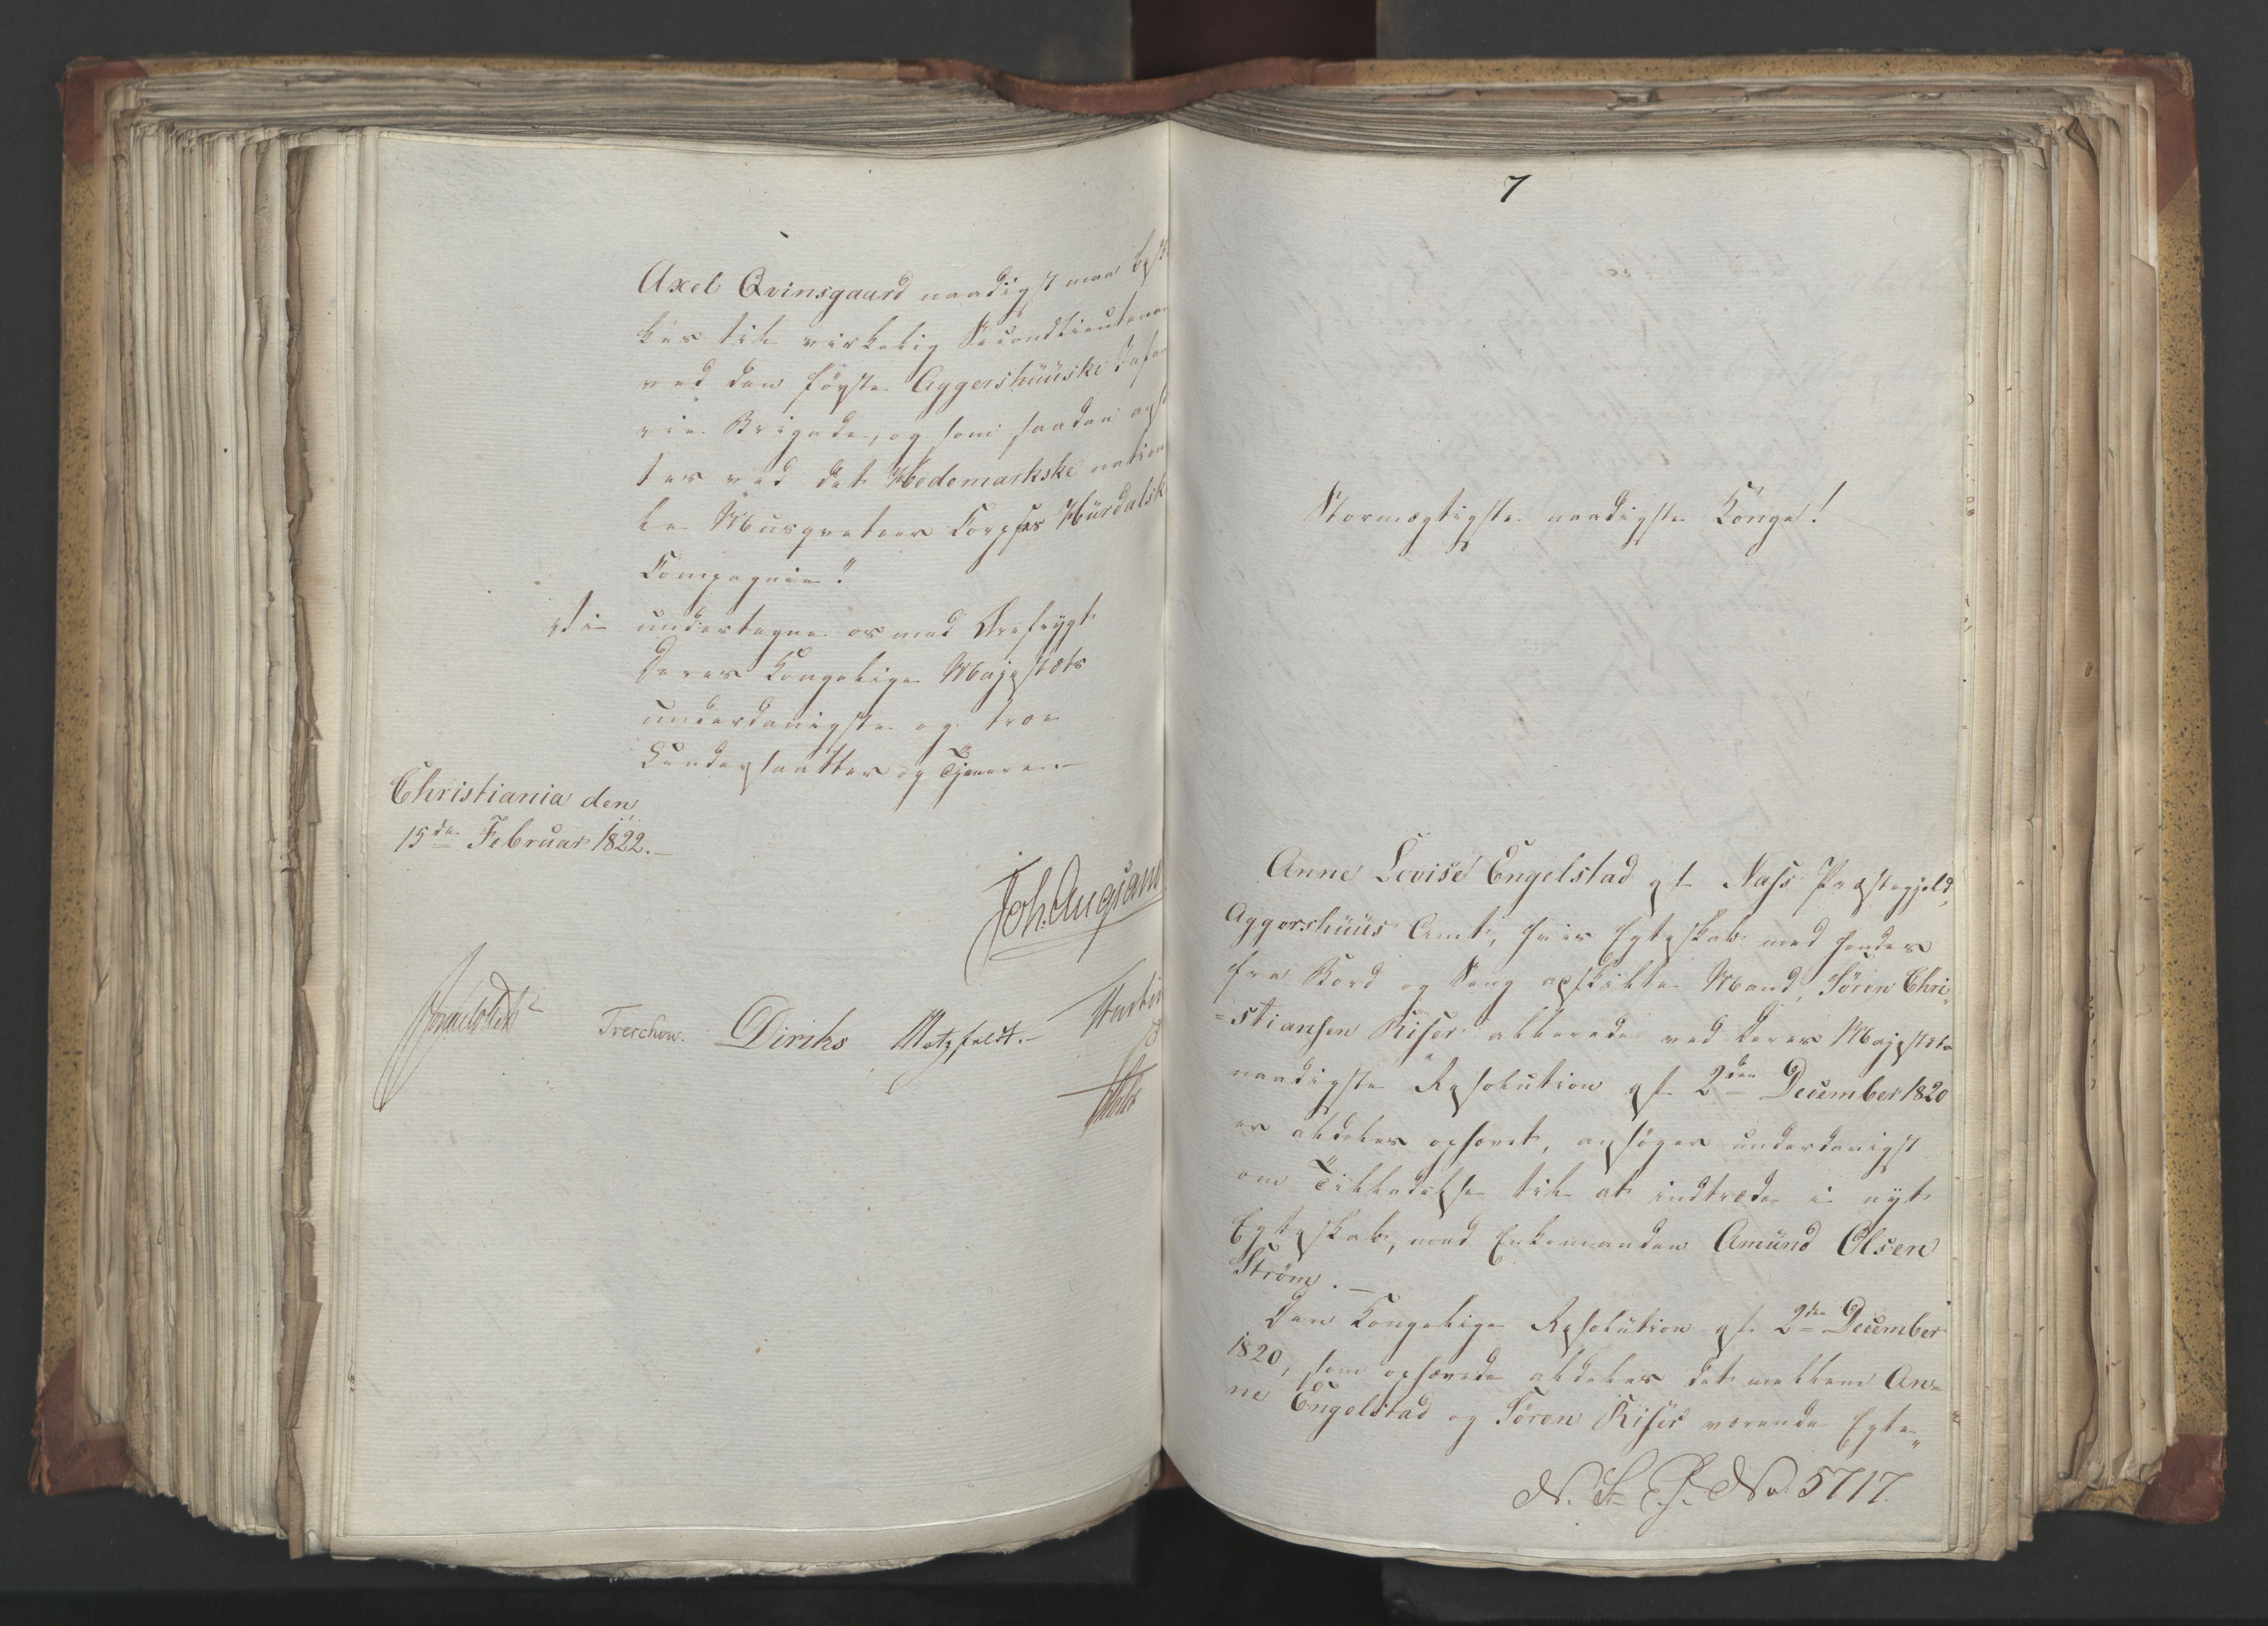 Axel Qvinsgaard naadigst maa besk
kes til virkelig Secondlieutenan
ved den første Aggershuuske Infan
rie Brigade, og som saadan ans
tes ved det Hedemarkske nation
le Musqveteer Corpses Hurdalsk
Compagnie".
Vi undertegne os med Ærefrygt
Deres Kongelige Majestæts
underdanigste og troe
Undersaatter og Tjenere.-
Christiania den
15de Februar 1822.-
Joh. Aug: San
Sommerhielm
Treschow. Diriks Motzfeldt.- 
7
Stormægtigste naadigste Konge!
Anne Lovise Engelstad af Næss Præstegjeld,
Aggershuus Amt, hvis Egteskab med hendes
fra Bord og Seng adskilte Mand, Søren Chri-
=stiansen Risør allerede ved Deres Majestæts
naadigste Resolution af 2den December 1820
er aldeles ophævet, ansøger underdanigst
om Tilladelse til at indtræde i nyt
Egteskab, med Enkemanden Amund Olsen
Strøm.-
Den Kongelige Resolution af 2den December
1820, som ophævede aldeles det mellem An=
ne Engelstad og Søren Risør værende Egte-
N. S. E. No. 5717.